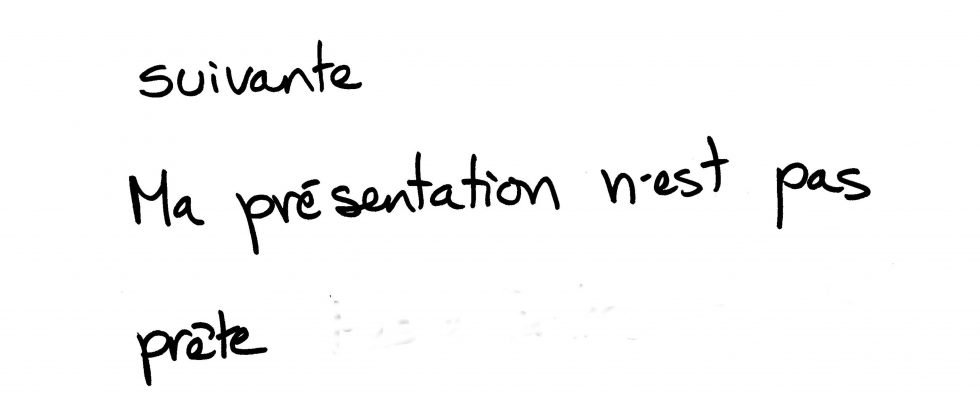 suivante
Ma présentation n'est pas
prête